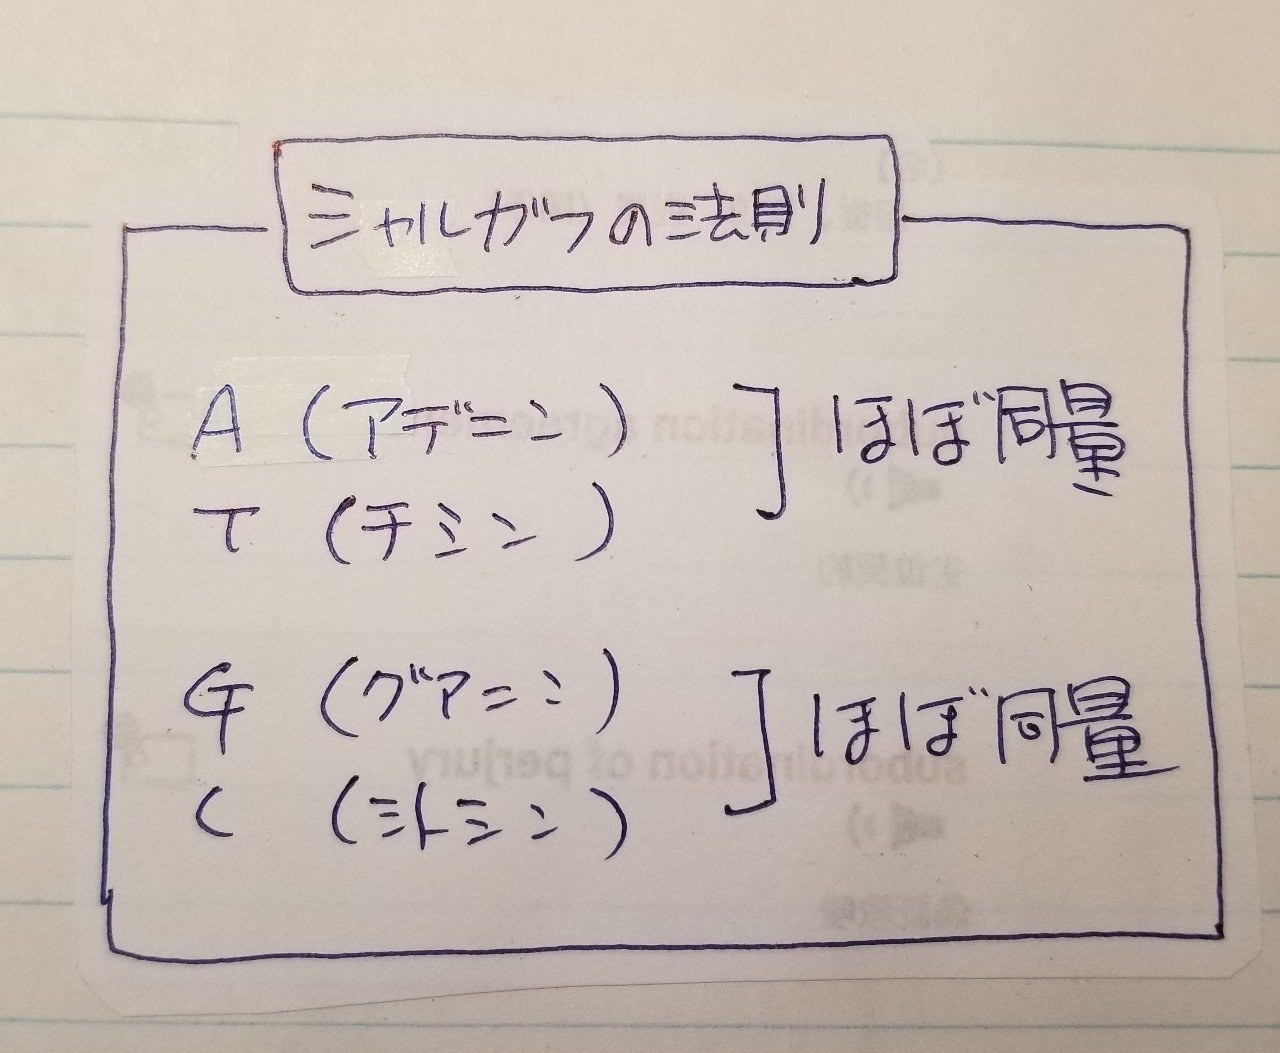 シャルガフの法則
A (アデニン) ] ほぼ同量
T (チミン)
G (グアニン) ] ほぼ同量
C (シトシン)